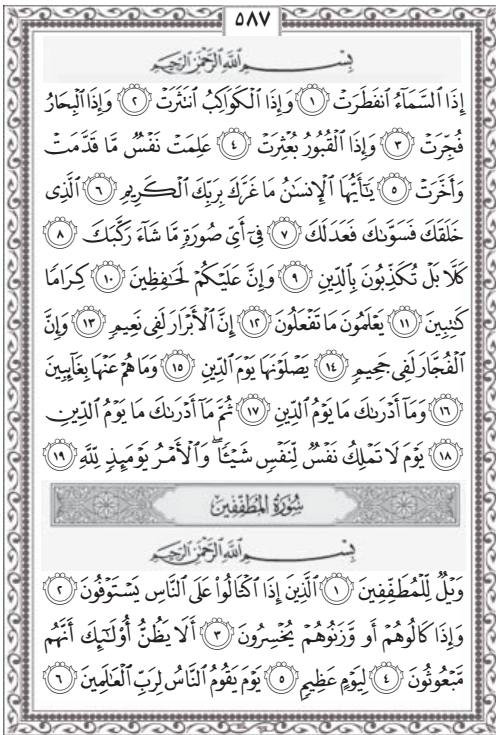 ٥٨٧
بِسْمِ ٱللَّهِ ٱلرَّحْمَٰنِ ٱلرَّحِيمِ
إِذَا ٱلسَّمَآءُ ٱنفَطَرَتْ ١ وَإِذَا ٱلْكَوَاكِبُ ٱنتَثَرَتْ ٢ وَإِذَا ٱلْبِحَارُ
فُجِّرَتْ ٣ وَإِذَا ٱلْقُبُورُ بُعْثِرَتْ ٤ عَلِمَتْ نَفْسٌ مَّا قَدَّمَتْ
وَأَخَّرَتْ ٥ يَٰٓأَيُّهَا ٱلْإِنسَٰنُ مَا غَرَّكَ بِرَبِّكَ ٱلْكَرِيمِ ٦ ٱلَّذِى
خَلَقَكَ فَسَوَّىٰكَ فَعَدَلَكَ ٧ فِىٓ أَىِّ صُورَةٍ مَّا شَآءَ رَكَّبَكَ ٨
كَلَّا بَلْ تُكَذِّبُونَ بِٱلدِّينِ ٩ وَإِنَّ عَلَيْكُمْ لَحَٰفِظِينَ ١٠ كِرَامًا
كَٰتِبِينَ ١١ يَعْلَمُونَ مَا تَفْعَلُونَ ١٢ إِنَّ ٱلْأَبْرَارَ لَفِى نَعِيمٍ ١٣ وَإِنَّ
ٱلْفُجَّارَ لَفِى جَحِيمٍ ١٤ يَصْلَوْنَهَا يَوْمَ ٱلدِّينِ ١٥ وَمَا هُمْ عَنْهَا بِغَآئِبِينَ
١٦ وَمَآ أَدْرَىٰكَ مَا يَوْمُ ٱلدِّينِ ١٧ ثُمَّ مَآ أَدْرَىٰكَ مَا يَوْمُ ٱلدِّينِ
١٨ يَوْمَ لَا تَمْلِكُ نَفْسٌ لِّنَفْسٍ شَيْـًٔا ۖ وَٱلْأَمْرُ يَوْمَئِذٍ لِّلَّهِ ١٩
سُورَةُ المُطَفِّفِينَ
بِسْمِ ٱللَّهِ ٱلرَّحْمَٰنِ ٱلرَّحِيمِ
وَيْلٌ لِّلْمُطَفِّفِينَ ١ ٱلَّذِينَ إِذَا ٱكْتَالُوا۟ عَلَى ٱلنَّاسِ يَسْتَوْفُونَ ٢
وَإِذَا كَالُوهُمْ أَو وَّزَنُوهُمْ يُخْسِرُونَ ٣ أَلَا يَظُنُّ أُو۟لَٰٓئِكَ أَنَّهُم
مَّبْعُوثُونَ ٤ لِيَوْمٍ عَظِيمٍ ٥ يَوْمَ يَقُومُ ٱلنَّاسُ لِرَبِّ ٱلْعَٰلَمِينَ ٦